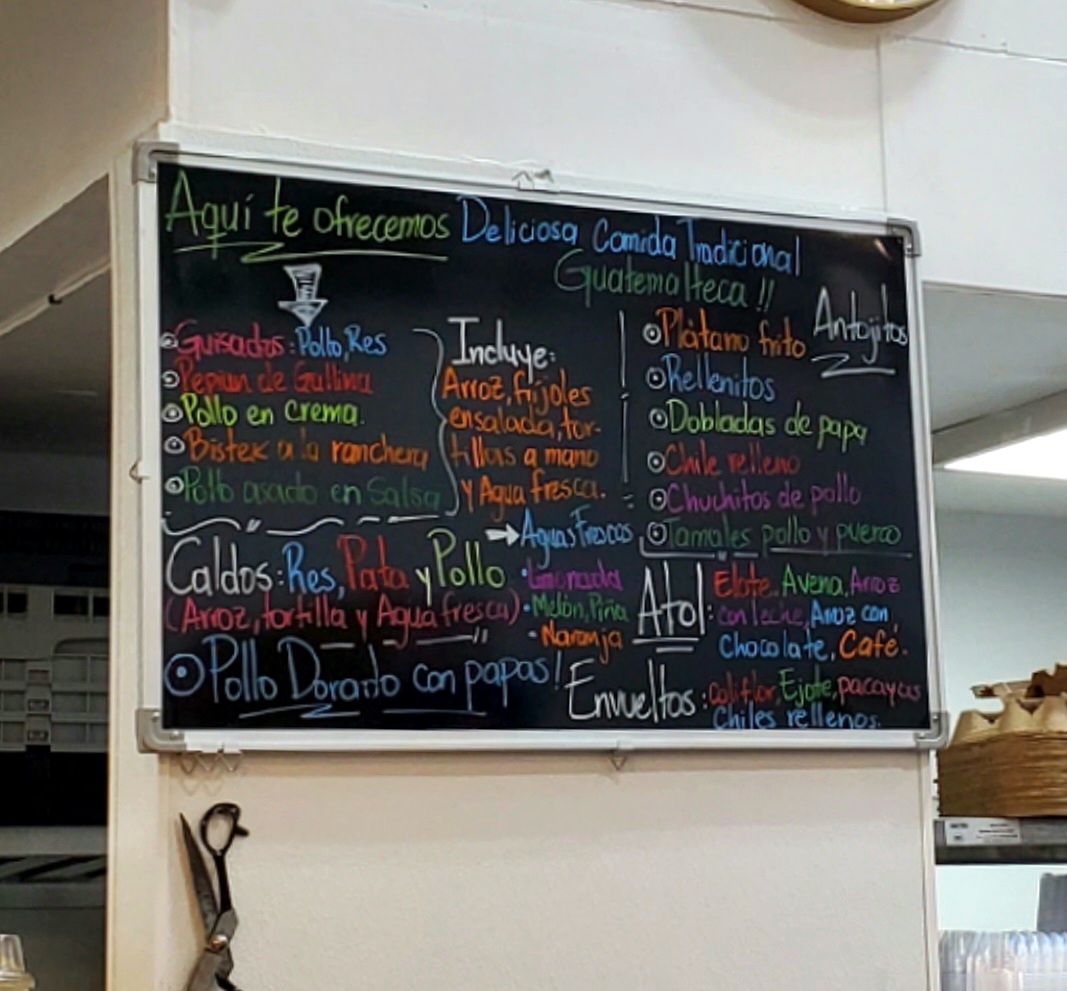 Aquí te ofrecemos Deliciosa Comida Tradicional
Guatemalteca !!
Guisados: Pollo, Res
Pepian de Gallina
Pollo en crema.
Bistek a la ranchera
Pollo asado en Salsa
Incluye:
Arroz, frijoles
ensalada, tor-
tillas a mano
y Agua fresca.
Antojitos
Plátano frito
Rellenitos
Dobladas de papa
Chile relleno
Chuchitos de pollo
Tamales pollo y puerco
Caldos: Res, Pata y Pollo
(Arroz, tortilla y Agua fresca)
Pollo Dorado con papas!
Aguas Frescas
Limonada
Melón, Piña
Naranja
Atol: Elote, Avena, Arroz
con leche, Arroz con
Chocolate, Café.
Envueltos: coliflor, Ejote, pacayas
Chiles rellenos.